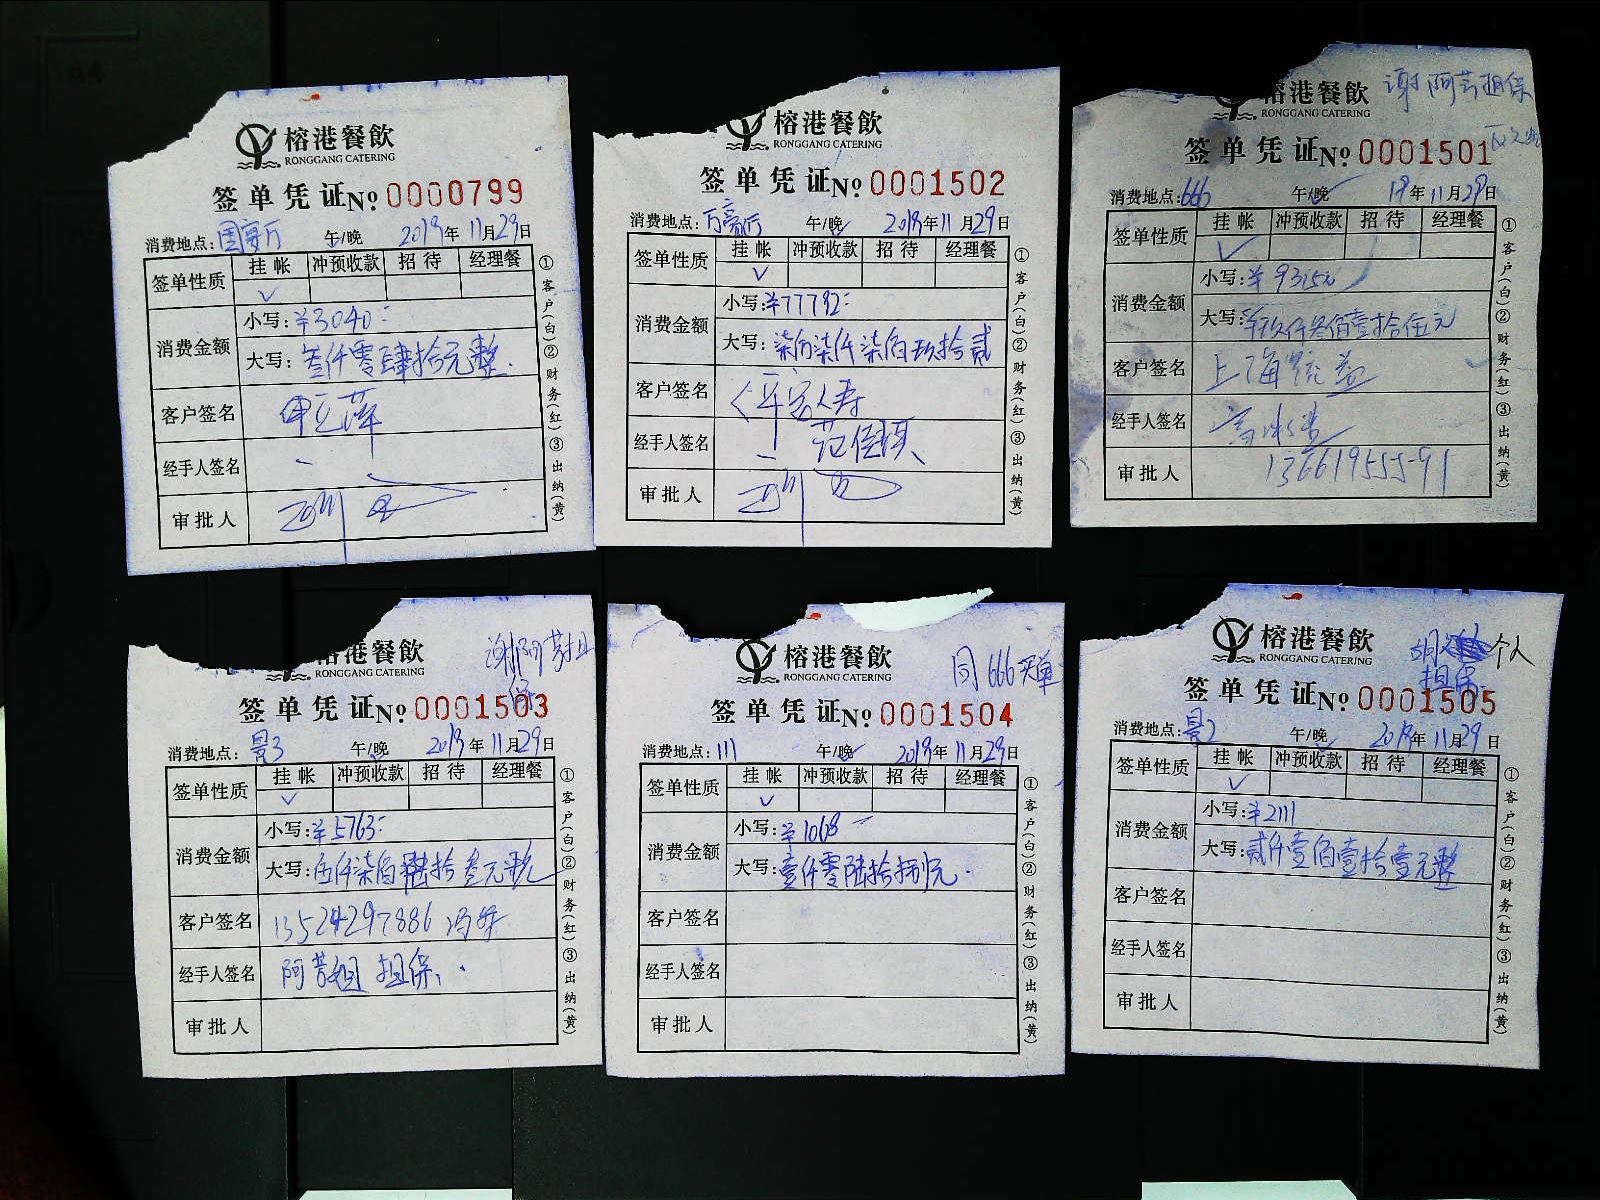 榕港餐飲
RONGGANG CATERING
签单凭证№ 0000799
消费地点：国宴厅 午/晚 2019年11月29日
签单性质 挂帐 冲预收款 招待 经理餐
✓
消费金额 小写：¥3040-
大写：叁仟零肆拾元整.
客户签名
经手人签名
审批人
①客户(白)②财务(红)③出纳(黄)
榕港餐飲
RONGGANG CATERING
签单凭证№ 0001502
消费地点：万豪厅 午/晚 2019年11月29日
签单性质 挂帐 冲预收款 招待 经理餐
✓
消费金额 小写：¥77792-
大写：柒万柒仟柒佰玖拾贰
客户签名 平安人寿
经手人签名
审批人
①客户(白)②财务(红)③出纳(黄)
谢阿芳担保
榕港餐飲
RONGGANG CATERING
签单凭证№ 0001501
消费地点：666 午/晚 19年11月29日
签单性质 挂帐 冲预收款 招待 经理餐
✓
消费金额 小写：¥9315元
大写：玖仟叁佰壹拾伍元
客户签名 上海
经手人签名
审批人 13661955591
①客户(白)②财务(红)③出纳(黄)
谢阿芳担保
榕港餐飲
RONGGANG CATERING
签单凭证№ 0001503
消费地点：景3 午/晚 2019年11月29日
签单性质 挂帐 冲预收款 招待 经理餐
✓
消费金额 小写：¥5763-
大写：伍仟柒佰陆拾叁元整
客户签名 13524297886
经手人签名 阿芳姐 担保.
审批人
①客户(白)②财务(红)③出纳(黄)
榕港餐飲
RONGGANG CATERING
同666买单
签单凭证№ 0001504
消费地点：111 午/晚 2019年11月29日
签单性质 挂帐 冲预收款 招待 经理餐
✓
消费金额 小写：¥1068-
大写：壹仟零陆拾捌元.
客户签名
经手人签名
审批人
①客户(白)②财务(红)③出纳(黄)
榕港餐飲
RONGGANG CATERING
个人
担保
签单凭证№ 0001505
消费地点：景2 午/晚 2019年11月29日
签单性质 挂帐 冲预收款 招待 经理餐
✓
消费金额 小写：¥2111
大写：贰仟壹佰壹拾壹元整
客户签名
经手人签名
审批人
①客户(白)②财务(红)③出纳(黄)